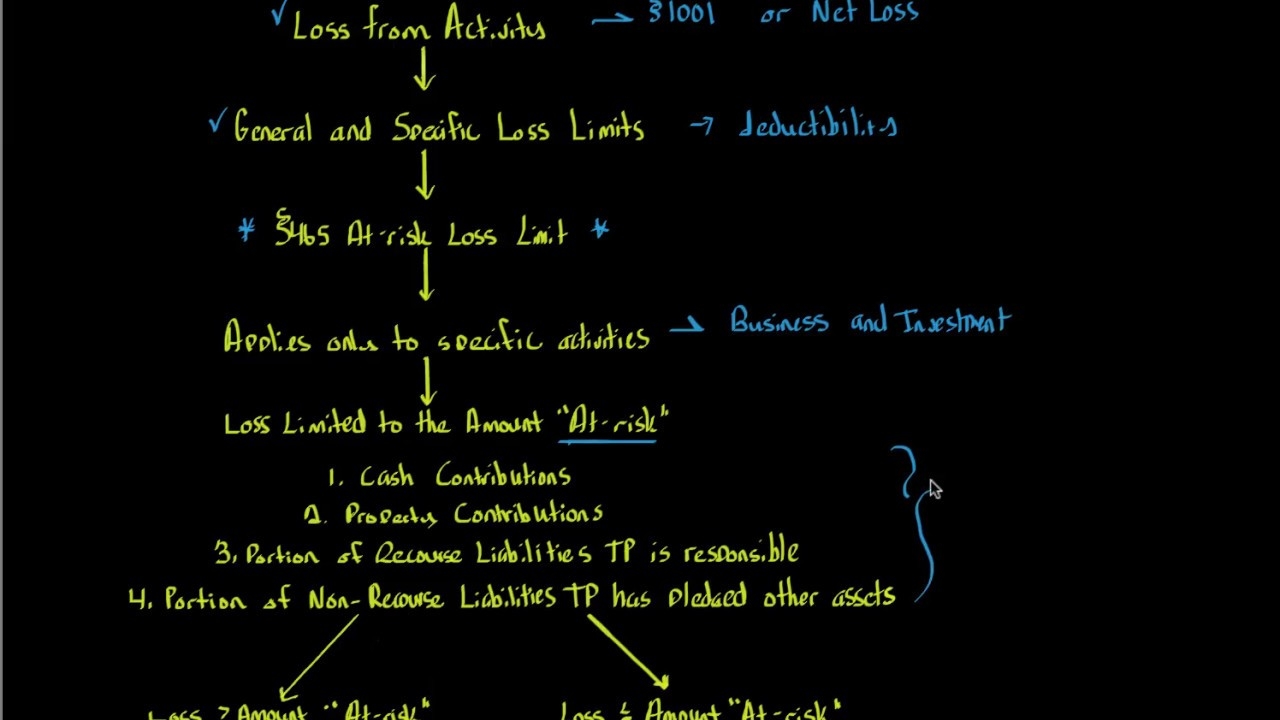 ✓ Loss from Activity → §1001 or Net Loss
✓ General and Specific Loss Limits → deductibility
* §465 At-risk Loss Limit *
Applies only to specific activities → Business and Investment
Loss Limited to the Amount "At-risk"
1. Cash Contributions
2. Property Contributions
3. Portion of Recourse Liabilities TP is responsible
4. Portion of Non-Recourse Liabilities TP has pledged other assets
Loss > Amount "At-risk" Loss ≤ Amount "At-risk"